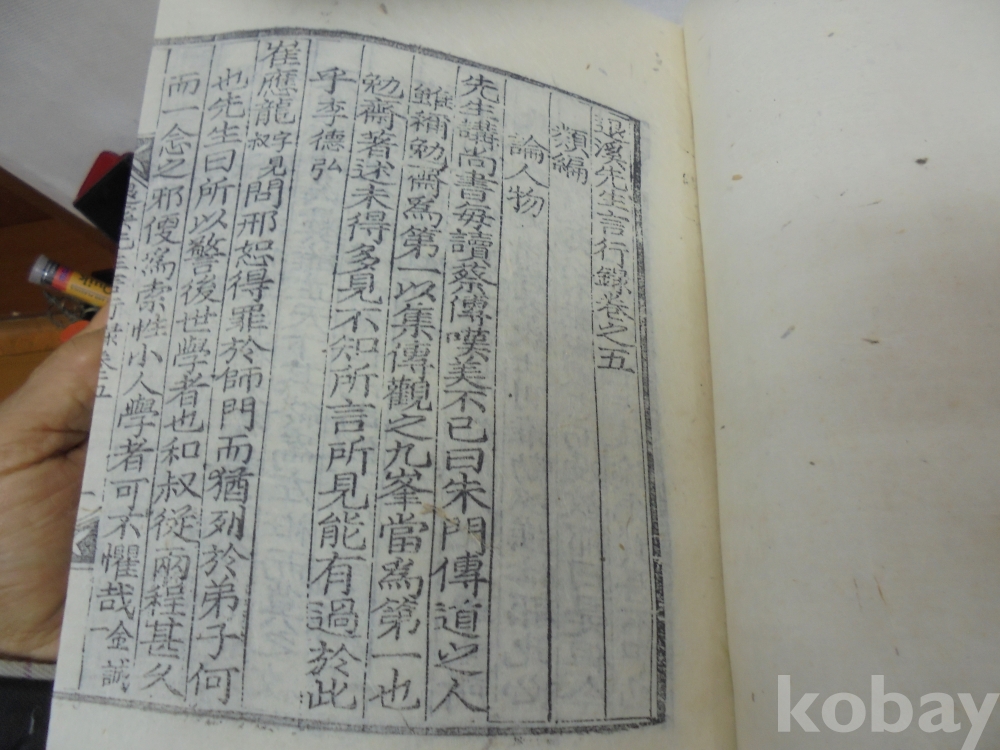 退溪先生言行錄卷之五
類編
論人物
先生講尚書每讀蔡傳嘆美不已曰朱門傳道之人
雖稱勉齋爲第一以集傳觀之九峯當爲第一也
勉齋著述未得多見不知所言所見能有過於此
乎李德弘
崔應龍字見叔問邢恕得罪於師門而猶列於弟子何
也先生曰所以警後世學者也和叔從兩程甚久
而一念之邪便爲索性小人學者可不懼哉金誠一
卷五
kobay